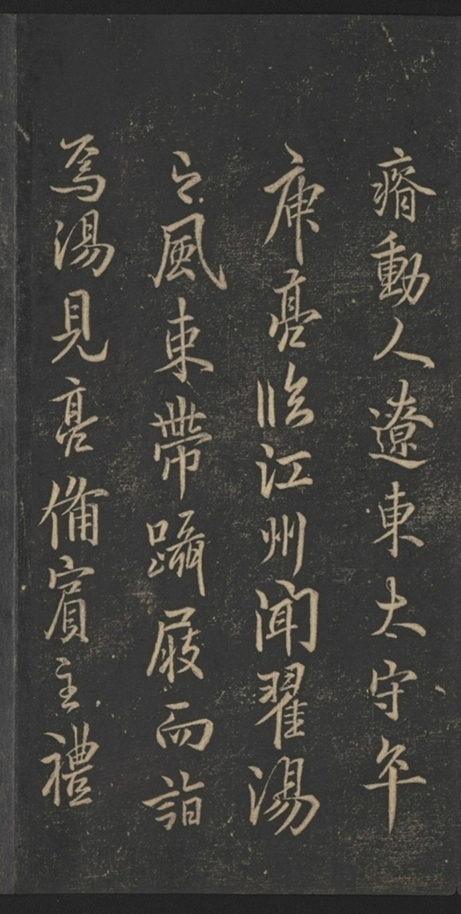 瘠動人遼東太守卒
庾亮臨江州聞翟湯
之風束帶躡屐而詣
焉湯見亮備賓主禮